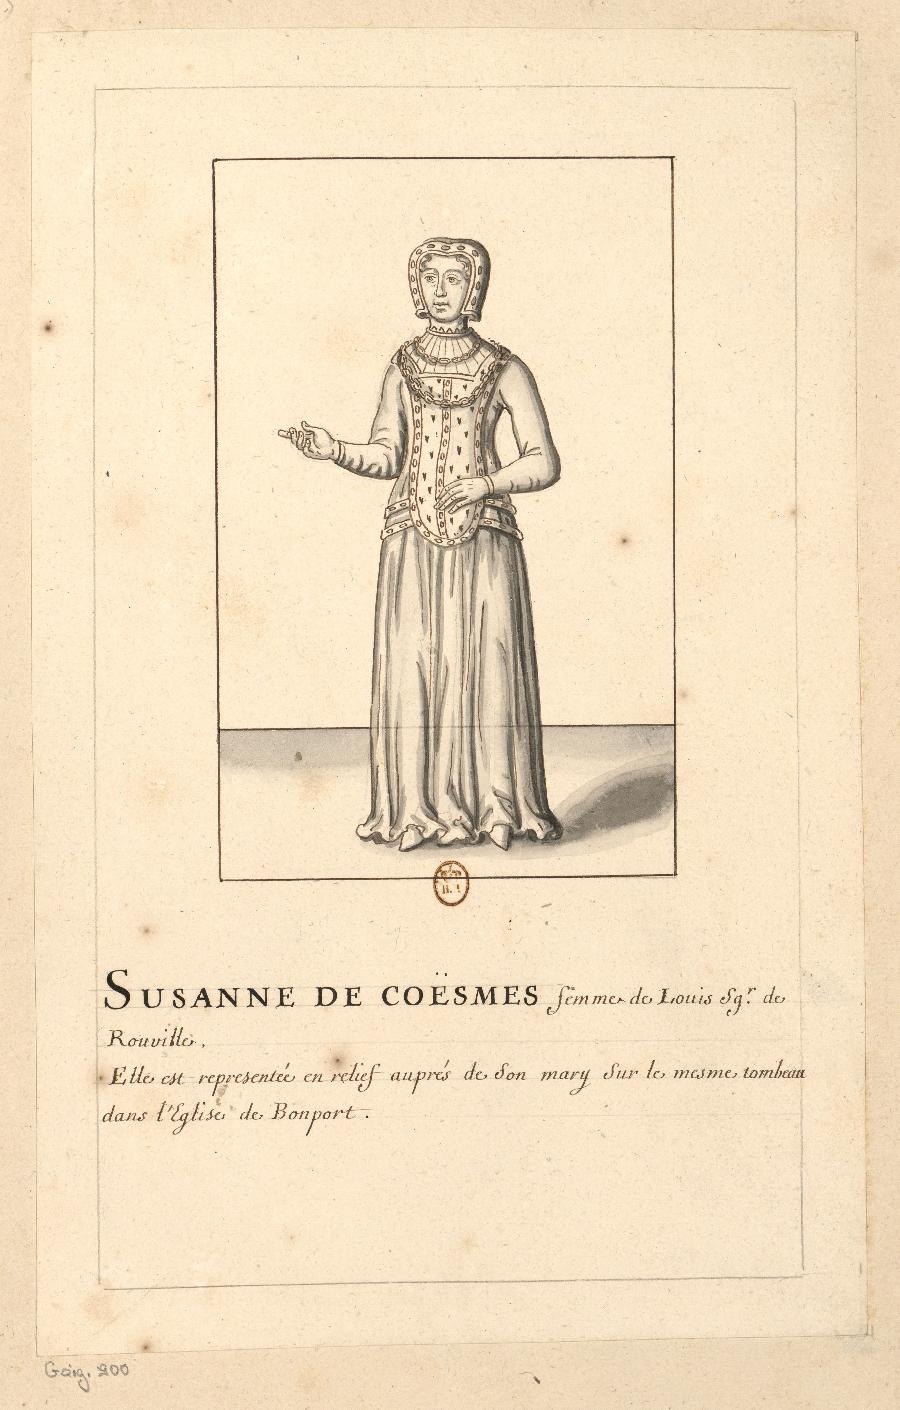 SUSANNE DE COËSMES femme de Louis Sgr de
Rouville.
Elle est representée en relief auprés de Son mary Sur le mesme tombeau
dans l'Eglise de Bonport.
Gaig. 900